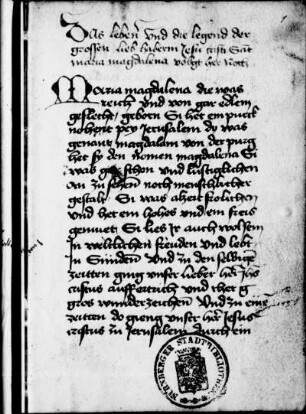 Das leben Und die legend der
grossen lieb haberin Jesu cristi Sant
maria magdalena volgt her noch
Maria magdalena die was
reich Und von gar edlem
geschlecht geboren Si het ein purck
nohent pey Jerusalem do was
genant magdalum von der purg
het sy den nomen magdalena Si
was gar schon und lustiglichen
an zu sehen noch menschlicher
gestalt Si was alzeit frolichen
und het ein hohes und ein freis
gemuet Si lies Ir auch wolsein
In weltlichen freuden und lebt
In Sunden Und zu den selbigen
zeitten ging unser lieber her Jhs
cristus auff ertrich und thet
gros wunder zeichen Und zu eine
zeitten do gieng unser her Jesus
cristus zu Jerusalem durch ein
NÜRNBERGER STADTBIBLIOTHEK